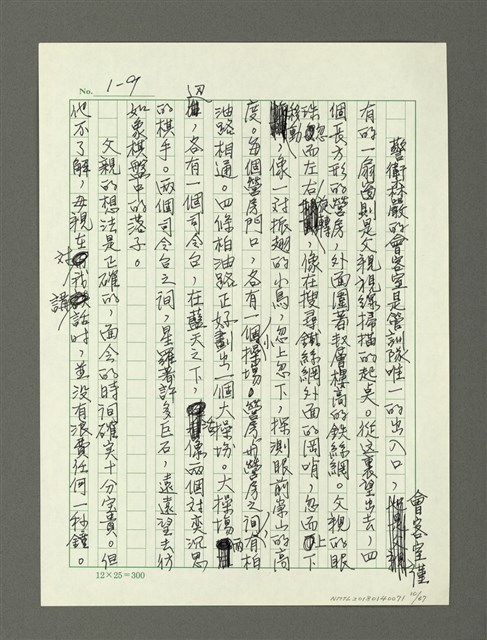 No. 1-9
警衛森嚴的會客室是管訓隊唯一的出入口，會客室僅
有的一扇窗則是父親視線掃描的起点。從這裏望出去，四
個長方形的營房，外面圍著叔層樓高的鉄絲網。父親的眼
珠忽而左右移轉，像在搜尋鐵絲網外面的岡哨，忽而上下
移動，像一对振翅的小鳥，忽上忽下，探測眼前崇山的高
度。每個營房門口，各有一個小操場。營房与營房之间有柏
油路相通。四條柏油路正好劃出一個大操場。大操場兩
边，各有一個司令台，在藍天之下，活像兩個对奕沉思
的棋手。兩個司令台之间，星羅著許多巨石，遠遠望去彷
如象棋盤中的落子。
父親的想法是正確的，面会的時间確实十分宝貴。但
他不了解，母親在对我講話时，並没有浪費任何一秒鐘。
12×25=300
NMTL20180140071
10/67